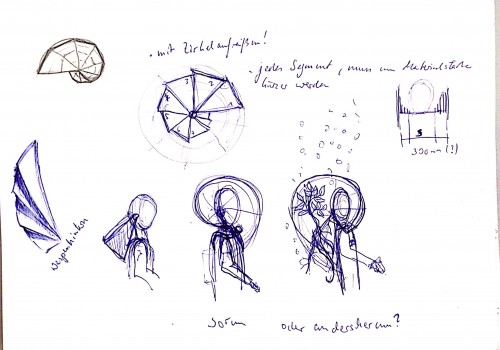 - mit Zirkel aufreißen!
- jedes Segment, muss um Materialstärke
kürzer werden
300mm (?)
so rum oder andersherum?